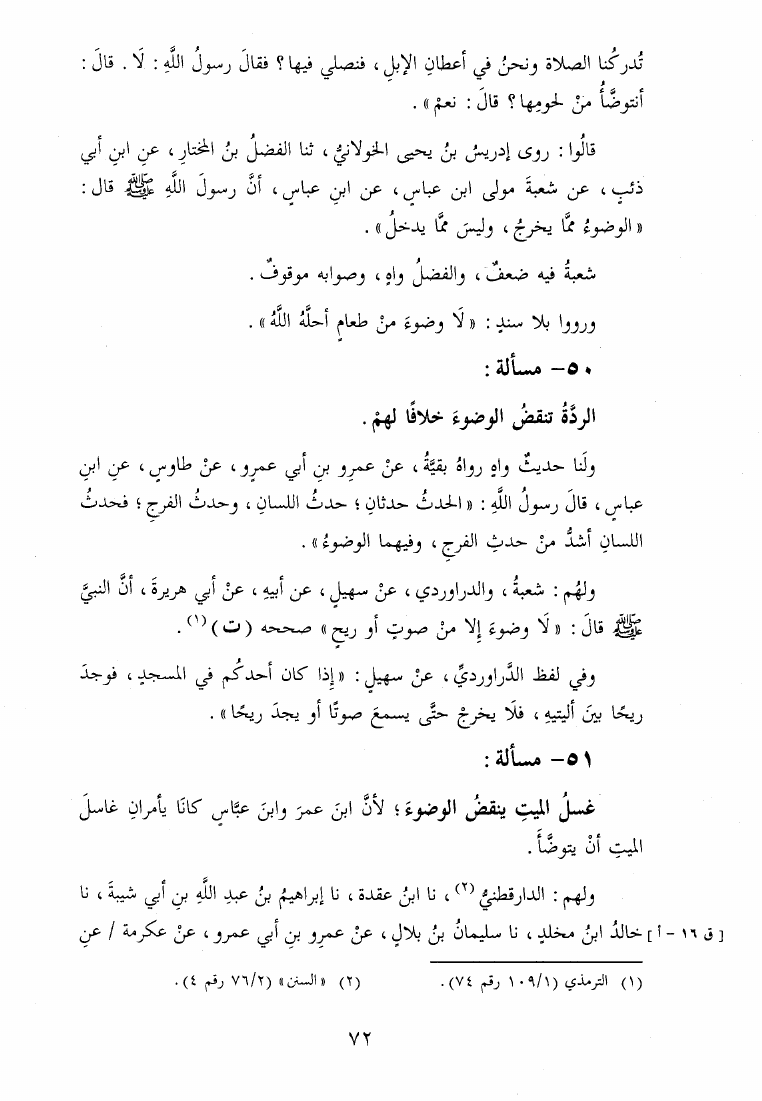 تُدركُنا الصلاة ونحنُ في أعطانِ الإبلِ، فنصلي فيها؟ فقالَ رسولُ اللَّهِ: لَا. قالَ:
أنتوضَّأُ منْ لحومِها؟ قالَ: نعمْ».
قالُوا: روى إدريسُ بنُ يحيى الخولانيُّ، ثنا الفضلُ بنُ المختارِ، عنِ ابنِ أبي
ذئبٍ، عن شعبةَ مولى ابن عباس، عن ابنِ عباسٍ، أنَّ رسولَ اللَّهِ ﷺ قال:
«الوضوءُ ممَّا يخرجُ، وليسَ ممَّا يدخلُ».
شعبةُ فيه ضعفٌ، والفضلُ واهٍ، وصوابه موقوفٌ.
ورووا بلا سندٍ: «لَا وضوءَ منْ طعامٍ أحلَّهُ اللَّهُ».
٥٠- مسألة:
الردَّةُ تنقضُ الوضوءَ خلافًا لهمْ.
ولَنا حديثٌ واهٍ رواهُ بقيَّةُ، عنْ عمرِو بنِ أبي عمرٍو، عنْ طاوسٍ، عنِ ابنِ
عباسٍ، قالَ رسولُ اللَّهِ: «الحدثُ حدثانِ؛ حدثُ اللسانِ، وحدثُ الفرجِ؛ فحدثُ
اللسانِ أشدُّ منْ حدثِ الفرجِ، وفيهما الوضوءُ».
ولهُم: شعبةُ، والدراوردي، عنْ سهيلٍ، عن أبيهِ، عنْ أبي هريرةَ، أنَّ النبيَّ
ﷺ قالَ: «لَا وضوءَ إلا منْ صوتٍ أو ريحٍ» صححه (ت)(١).
وفي لفظ الدَّراورديِّ، عنْ سهيلٍ: «إذا كان أحدكُم في المسجدِ، فوجدَ
ريحًا بينَ أليتيهِ، فلَا يخرجْ حتَّى يسمعَ صوتًا أو يجدَ ريحًا».
٥١- مسألة:
غسلُ الميتِ ينقضُ الوضوءَ؛ لأنَّ ابنَ عمرَ وابنَ عبَّاسٍ كانَا يأمرانِ غاسلَ
الميتِ أنْ يتوضَّأَ.
ولهم: الدارقطنيُّ(٢)، نا ابنُ عقدة، نا إبراهيمُ بنُ عبدِ اللَّهِ بنِ أبي شيبةَ، نا
[ق ١٦ - أ] خالدُ ابنُ مخلدٍ، نا سليمانُ بنُ بلالٍ، عنْ عمرِو بنِ أبي عمرو، عنْ عكرمة / عنِ
(١) الترمذي (١/١٠٩ رقم ٧٤). (٢) «السنن» (٢/٧٦ رقم ٤).
٧٢